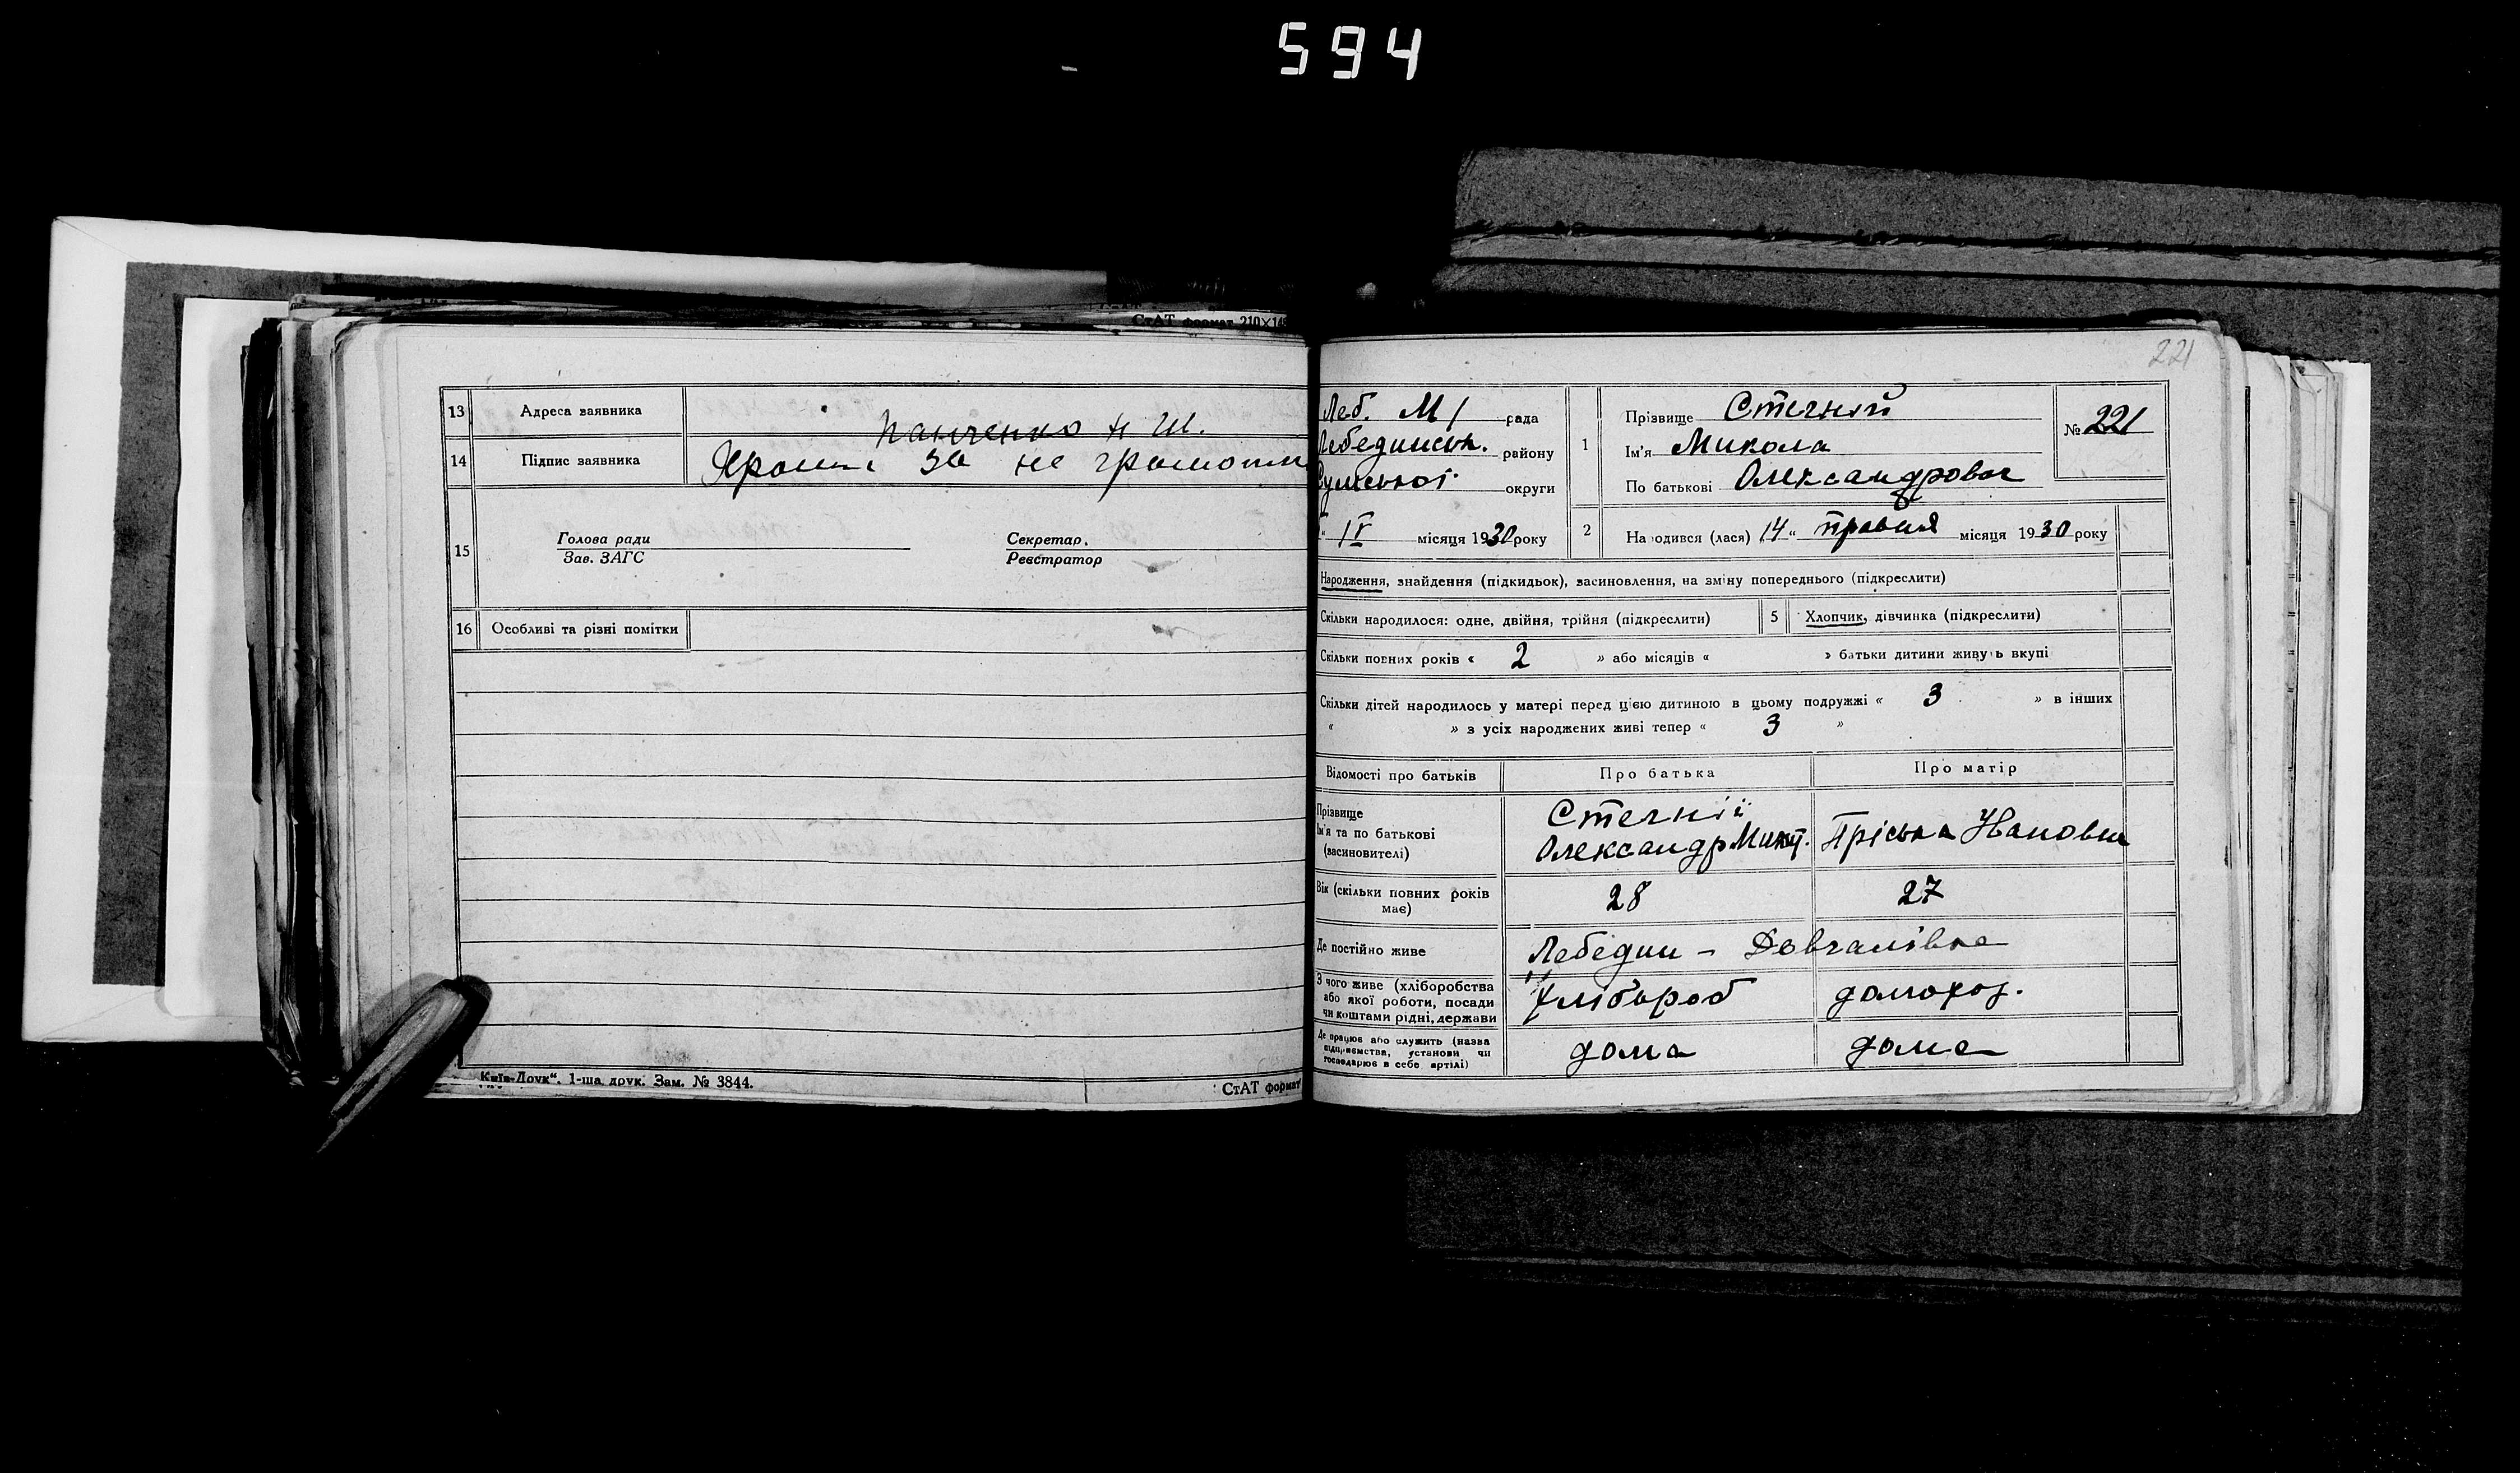 594
СтАТ формат 210×14
13 Адреса заявника
Панченко Н Ш.
14 Підпис заявника за не грамотн
15 Голова ради Секретар.
Зав. ЗАГС Реєстратор
16 Особливі та різні помітки
Київ-Друк“. 1-ша друк. Зам. № 3844.
СтАТ формат
221
Леб. М/ рада
Лебединськ. району
Сумської округи
IV місяця 1930 року
1 Прізвище Стечний
Ім'я Микола
По батькові Олександрович
№ 221
2 Народився (лася) 14 “ травня місяця 1930 року
Народження, знайдення (підкидьок), засиновлення, на зміну попереднього (підкреслити)
Скільки народилося: одне, двійня, трійня (підкреслити) 5 Хлопчик, дівчинка (підкреслити)
Скільки повних років « 2 » або місяців « » батьки дитини живуть вкупі
Скільки дітей народилось у матері перед цією дитиною в цьому подружжі « 3 » в інших
« » з усіх народжених живі тепер « 3 »
Відомості про батьків Про батька Про матір
Прізвище
Ім'я та по батькові
(засиновителі)
Стечній
Олександр Микит. Пріська Ивановна
Вік (скільки повних років
має)
28 27
Де постійно живе Лебедин – Довгалівка
З чого живе (хліборобства
або якої роботи, посади
чи коштами рідні, держави
хлібороб домогос.
Де працює або служить (назва
підприємства, установи чи
господарює в себе артілі)
дома дома